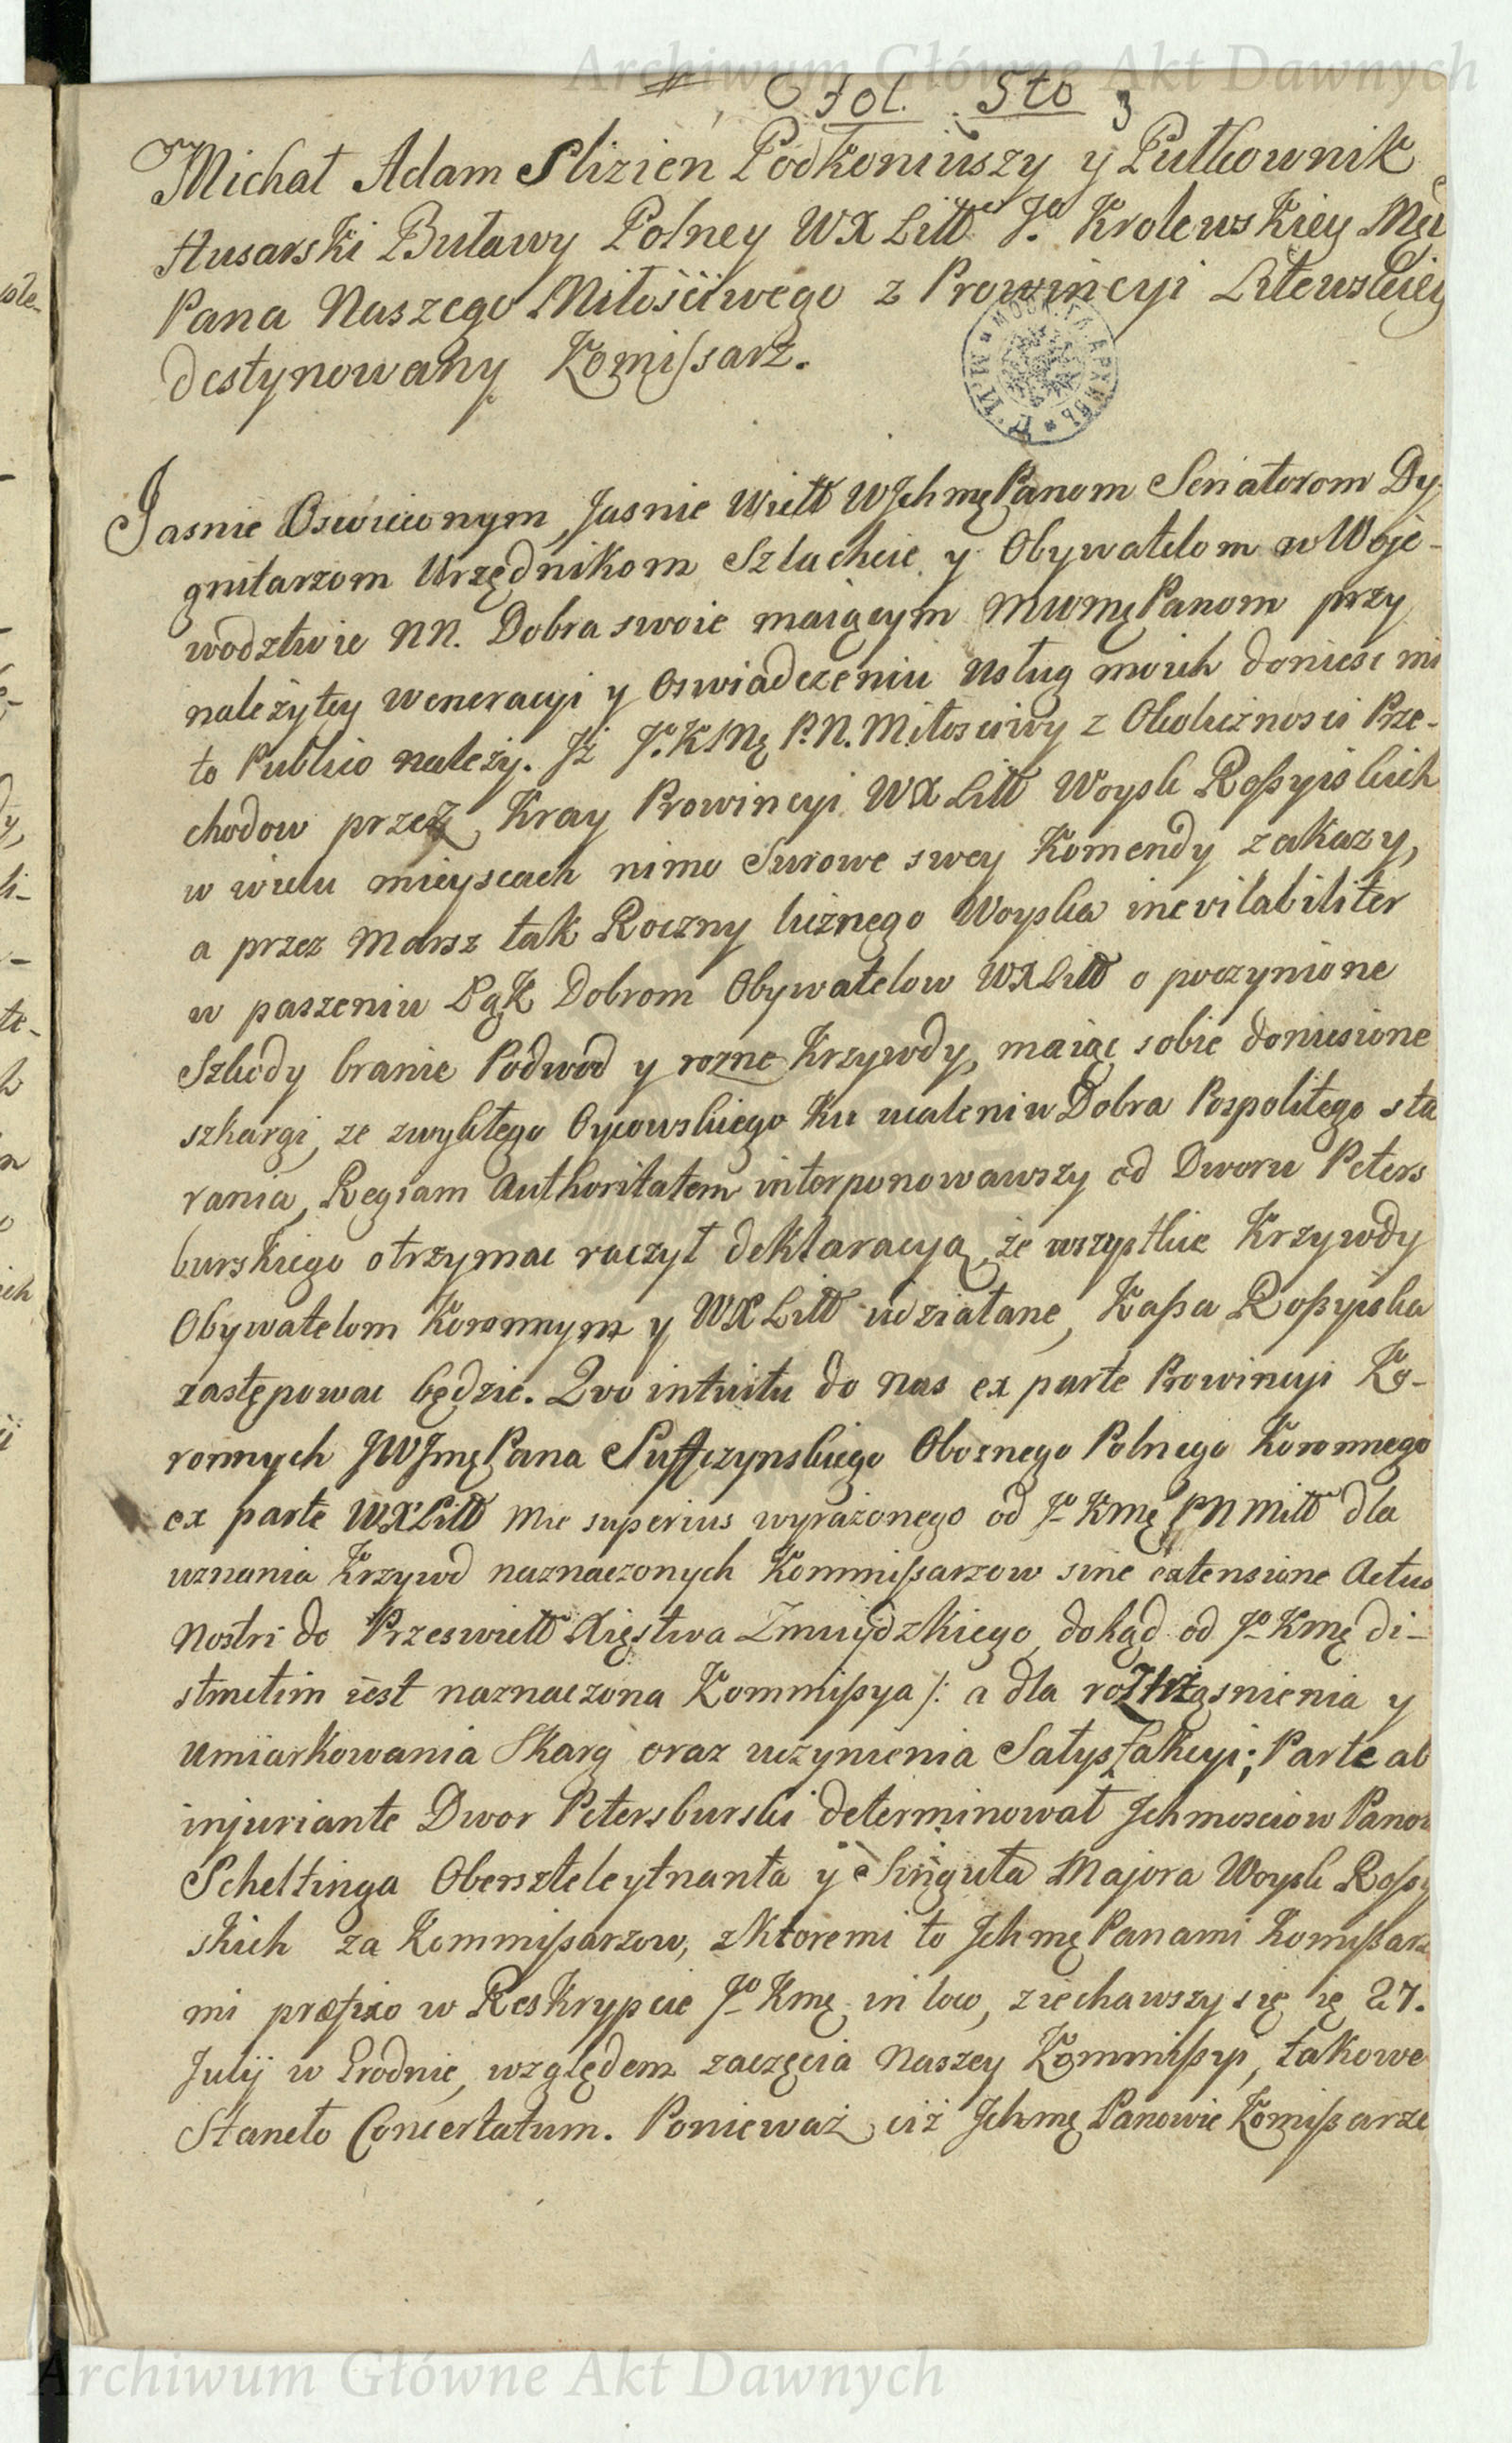 Archiwum Główne Akt Dawnych
fol. Sto 3
Michał Adam Slizien Podkoniuszy y Pułkownik
Husarski Buławy Polney WX Litt Jo Krolewskiey Mci
Pana Naszego Miłościwego z Prowincyi Litewskiey
destynowany Komissarz.
Jasnie Oswieconym, Jasnie Wielb WJchmę Panom Senatorom Dy
gnitarzom Urzędnikom Szlachcie y Obywatelom w Woje-
wodztwie NN. Dobra swoie maiącym MWMę Panom przy
należytey weneracyi y Oswiadczeniu Usług moich doniesc mi
to Publico należy. Jż Jo KMę P. N. Miłosciwy z Okoliznosci Prze-
chodow przez Kray Prowincyi WX Litt Woysk Roßyiskich
w wielu mieyscach nimo Surowe swey Komendy zakazy,
a przez Marsz tak Roczny liznego Woyska inevitabiliter
w paszeniu Łąk Dobrom Obywatelow WX Litt o poczynione
Szkody branie Podwod y rozne Krzywdy, maiąc sobie doniesione
szkargi, ze zwykłego Oycowskiego Ku ucaleniu Dobra Pospolitego sta
rania, Regiam Authoritatem interponowawszy od Dworu Peters
burskiego otrzymac raczył deklaracyą, że wszystkie Krzywdy
Obywatelom Koronnym y WX Litt udziałane, Kaßa Roßyiska
zastępowac będzie. Quo intuitu do nas ex parte Prowincyi Ko-
ronnych JWJmę Pana Suffczynskiego Oboznego Polnego Koronnego
ex parte WX Litt Mie superius wyrażonego od Jo Kmę PN Mitt dla
uznania Krzywd naznaczonych Kommißarzow sine extensione Actus
Nostri do Przeswiett Xięstwa Zmuydzkiego, dokąd od Jo Kmę di-
stinctim iest naznaczona Kommißya /: a dla roztrząsnienia y
Umiarkowania Skarg oraz uczynienia Satysfakcyi; Parte ab
injuriante Dwor Petersburski determinował Jchmosciow Panow
Scheltinga Oberszteleytnanta y Singuła Majora Woysk Roßy
skich za Kommißarzow, z Ktoremi to Jchmę Panami Komißarz
mi præfixo w Reskrypcie Jo Kmę in loco, ziechawszy się ię 27.
Julij w Grodnie, względem zaczęcia Naszey Kommißyi, takowe
Staneło Concertatum. Ponieważ ciż Jchmę Panowie Komißarze
Archiwum Główne Akt Dawnych